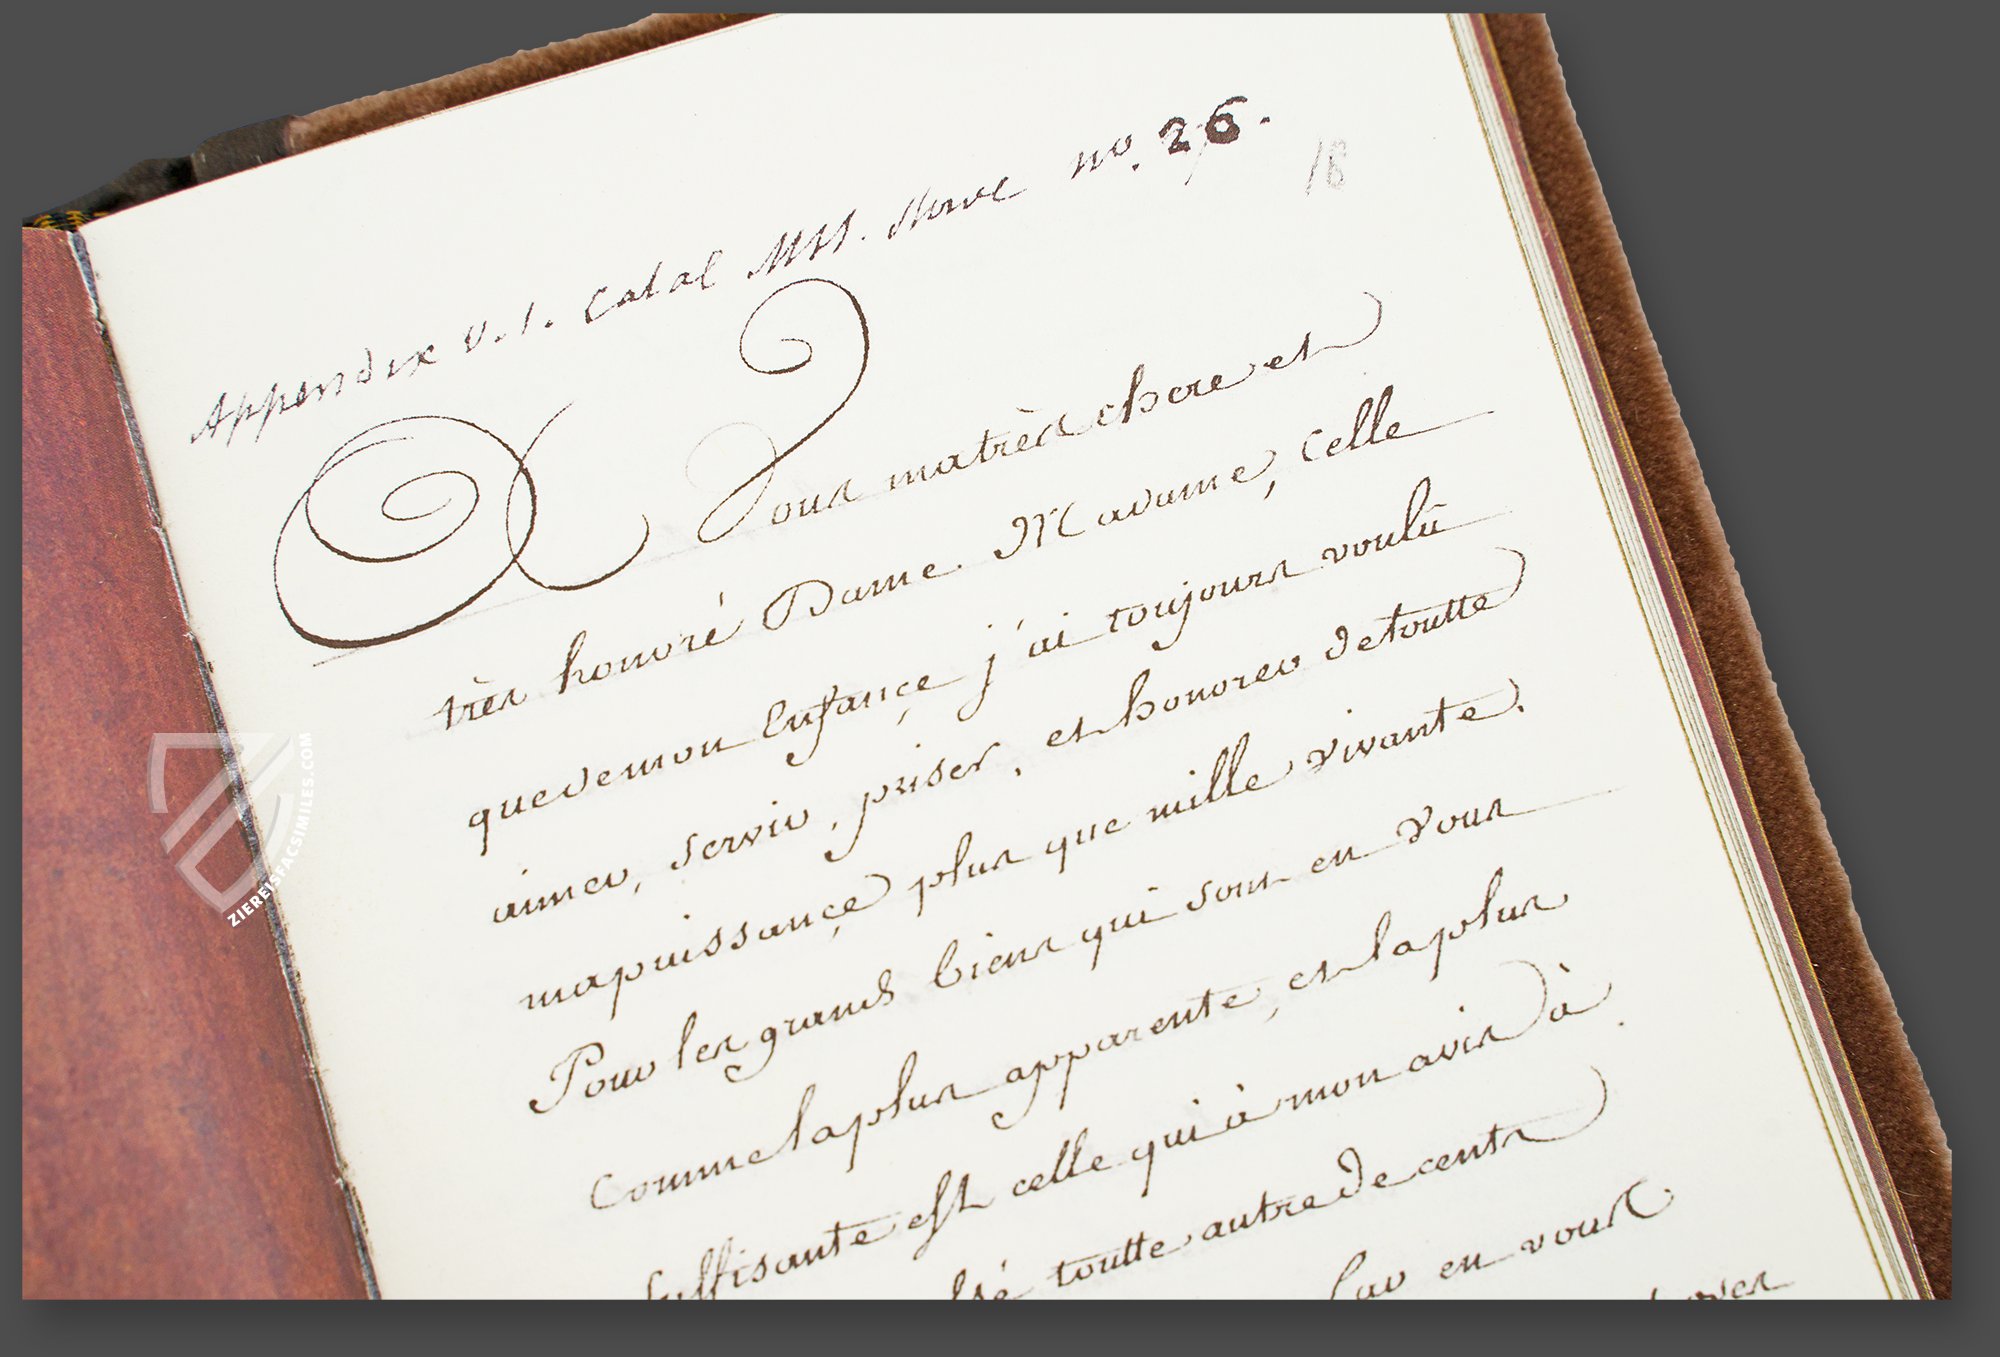 Appendix V. 1. Catal MSS. Stowe no. 26.
18
A Vous ma très chere et
très honoré Dame. Madame, celle
que de mon Enfançe j'ai toujours voulü
aimer, servir, priser, et honorer de toutte
ma puissançe plus que mille vivante.
Pour les grands biens qui sont en vous
Comme la plus apparente, et la plus
Suffisante est celle qui à mon avis à
toutte autre de cents
en vous
ZIEREISFACSIMILES.COM